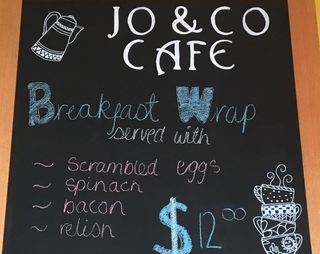 JO & CO
CAFE
Breakfast Wrap
served with
~ scrambled eggs
~ spinach
~ bacon
~ relish
$12.00